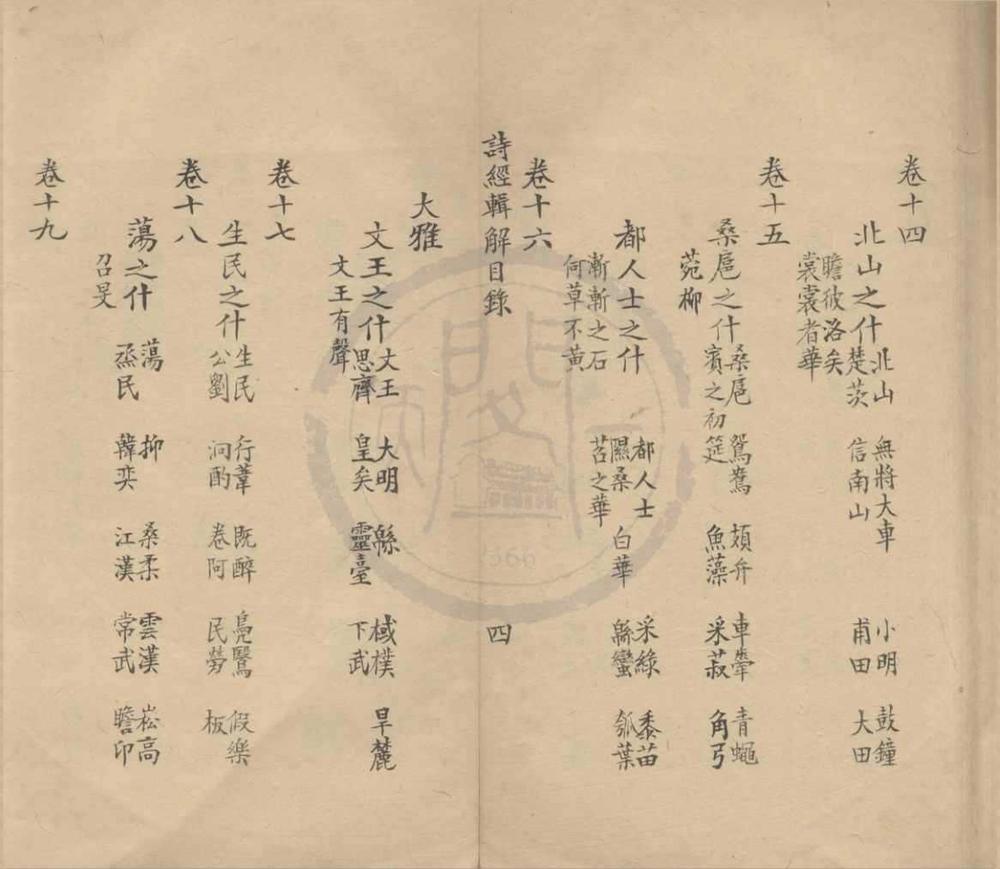 卷十四
北山之什 北山 無將大車 小明 鼓鐘
楚茨 信南山 甫田 大田
瞻彼洛矣
裳裳者華
卷十五
桑扈之什 桑扈 鴛鴦 頍弁 車舝 青蠅
賓之初筵 魚藻 采菽 角弓
菀柳
都人士之什 都人士 采綠 黍苗
隰桑 白華 緜蠻 瓠葉
漸漸之石 苕之華
何草不黄
卷十六
詩經輯解目錄 四
大雅
文王之什 文王 大明 緜 棫樸 旱麓
思齊 皇矣 靈臺 下武
文王有聲
卷十七
生民之什 生民 行葦 既醉 鳧鷖 假樂
公劉 泂酌 卷阿 民勞 板
卷十八
蕩之什 蕩 抑 桑柔 雲漢 崧高
烝民 韓奕 江漢 常武 瞻卬
召旻
卷十九